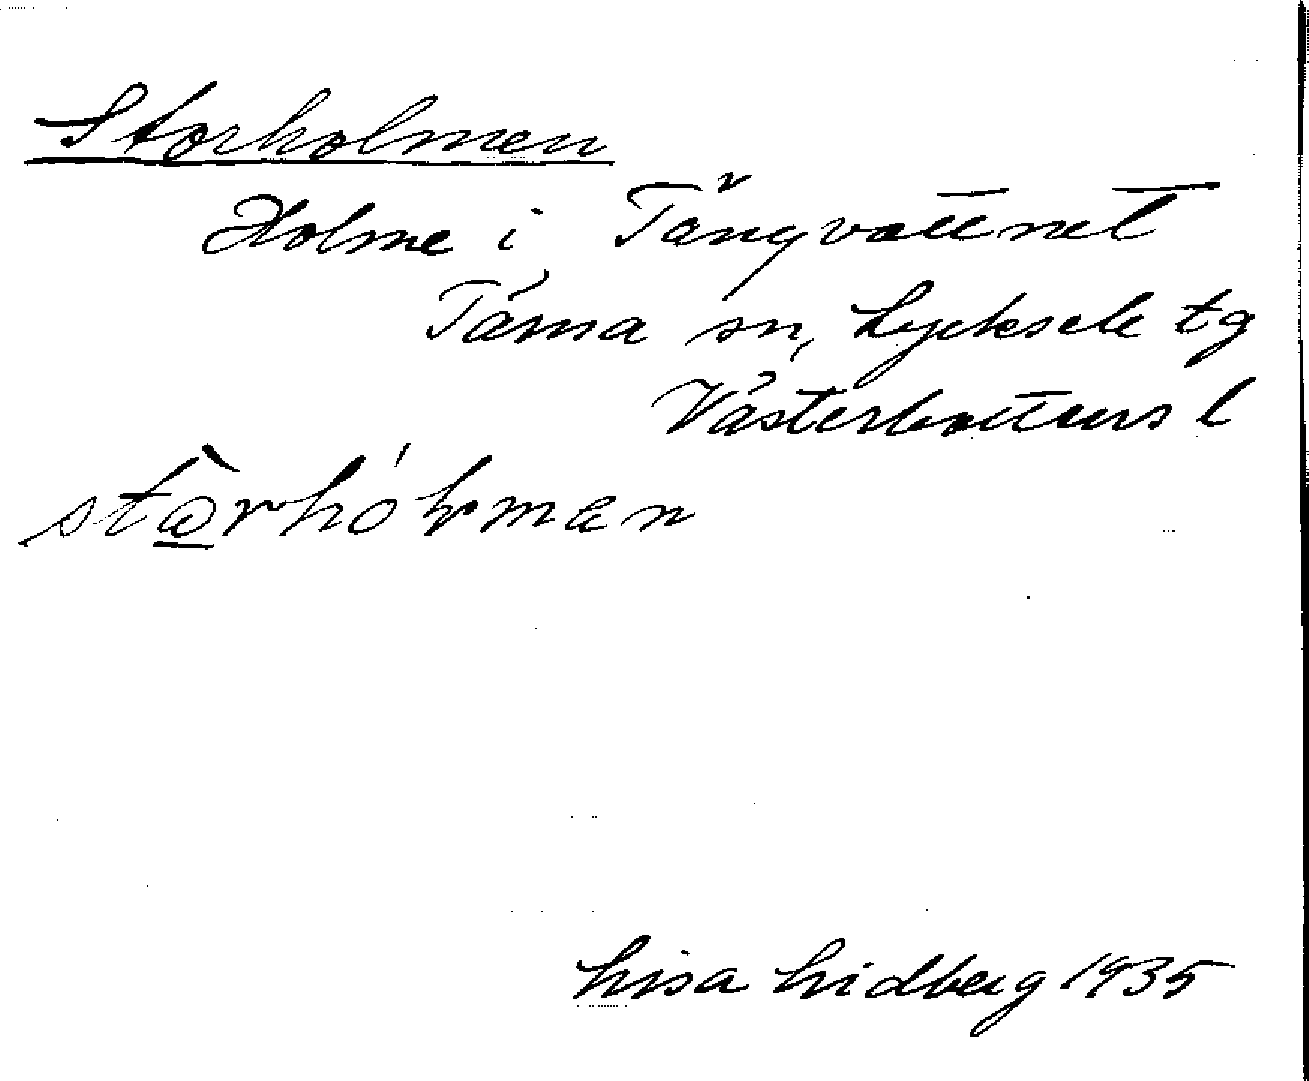 Storholmen
Holme i Tängvattnet
Tärna sn, Lycksele tg
Västerbottens l
Lisa Lidberg 1935